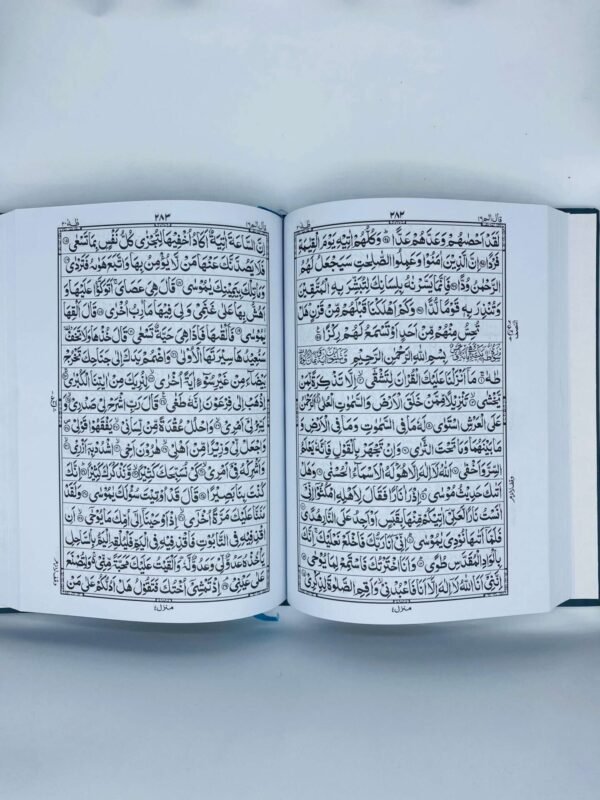 قال الم ١٦ ٢٨٢ طٰهٰ ٢٠
لَقَدْ اَحْصٰىهُمْ وَعَدَّهُمْ عَدًّا ۝ وَكُلُّهُمْ اٰتِيْهِ يَوْمَ الْقِيٰمَةِ
فَرْدًا ۝ اِنَّ الَّذِيْنَ اٰمَنُوْا وَعَمِلُوا الصّٰلِحٰتِ سَيَجْعَلُ لَهُمُ
الرَّحْمٰنُ وُدًّا ۝ فَاِنَّمَا يَسَّرْنٰهُ بِلِسَانِكَ لِتُبَشِّرَ بِهِ الْمُتَّقِيْنَ
وَتُنْذِرَ بِهٖ قَوْمًا لُّدًّا ۝ وَكَمْ اَهْلَكْنَا قَبْلَهُمْ مِّنْ قَرْنٍ هَلْ
تُحِسُّ مِنْهُمْ مِّنْ اَحَدٍ اَوْ تَسْمَعُ لَهُمْ رِكْزًا ۝
بِسْمِ اللّٰهِ الرَّحْمٰنِ الرَّحِيْمِ
طٰهٰ ۝ مَآ اَنْزَلْنَا عَلَيْكَ الْقُرْاٰنَ لِتَشْقٰٓى ۝ اِلَّا تَذْكِرَةً لِّمَنْ
يَّخْشٰى ۝ تَنْزِيْلًا مِّمَّنْ خَلَقَ الْاَرْضَ وَالسَّمٰوٰتِ الْعُلٰى ۝ اَلرَّحْمٰنُ
عَلَى الْعَرْشِ اسْتَوٰى ۝ لَهٗ مَا فِي السَّمٰوٰتِ وَمَا فِي الْاَرْضِ وَ
مَا بَيْنَهُمَا وَمَا تَحْتَ الثَّرٰى ۝ وَاِنْ تَجْهَرْ بِالْقَوْلِ فَاِنَّهٗ يَعْلَمُ
السِّرَّ وَاَخْفٰى ۝ اَللّٰهُ لَآ اِلٰهَ اِلَّا هُوَ لَهُ الْاَسْمَآءُ الْحُسْنٰى ۝ وَهَلْ
اَتٰىكَ حَدِيْثُ مُوْسٰى ۝ اِذْ رَاٰ نَارًا فَقَالَ لِاَهْلِهِ امْكُثُوْٓا اِنِّيْٓ
اٰنَسْتُ نَارًا لَّعَلِّيْٓ اٰتِيْكُمْ مِّنْهَا بِقَبَسٍ اَوْ اَجِدُ عَلَى النَّارِ هُدًى ۝
فَلَمَّآ اَتٰىهَا نُوْدِيَ يٰمُوْسٰى ۝ اِنِّيْٓ اَنَا رَبُّكَ فَاخْلَعْ نَعْلَيْكَ اِنَّكَ
بِالْوَادِ الْمُقَدَّسِ طُوًى ۝ وَاَنَا اخْتَرْتُكَ فَاسْتَمِعْ لِمَا يُوْحٰى ۝
اِنَّنِيْٓ اَنَا اللّٰهُ لَآ اِلٰهَ اِلَّآ اَنَا فَاعْبُدْنِيْ وَاَقِمِ الصَّلٰوةَ لِذِكْرِيْ ۝
منزل ٤
قال الم ١٦ ٢٨٣ طٰهٰ ٢٠
اِنَّ السَّاعَةَ اٰتِيَةٌ اَكَادُ اُخْفِيْهَا لِتُجْزٰى كُلُّ نَفْسٍۢ بِمَا تَسْعٰى ۝
فَلَا يَصُدَّنَّكَ عَنْهَا مَنْ لَّا يُؤْمِنُ بِهَا وَاتَّبَعَ هَوٰىهُ فَتَرْدٰى ۝
وَمَا تِلْكَ بِيَمِيْنِكَ يٰمُوْسٰى ۝ قَالَ هِيَ عَصَايَ اَتَوَكَّؤُا عَلَيْهَا وَ
اَهُشُّ بِهَا عَلٰى غَنَمِيْ وَلِيَ فِيْهَا مَاٰرِبُ اُخْرٰى ۝ قَالَ اَلْقِهَا
يٰمُوْسٰى ۝ فَاَلْقٰىهَا فَاِذَا هِيَ حَيَّةٌ تَسْعٰى ۝ قَالَ خُذْهَا وَلَا تَخَفْ
سَنُعِيْدُهَا سِيْرَتَهَا الْاُوْلٰى ۝ وَاضْمُمْ يَدَكَ اِلٰى جَنَاحِكَ تَخْرُجْ
بَيْضَآءَ مِنْ غَيْرِ سُوْٓءٍ اٰيَةً اُخْرٰى ۝ لِنُرِيَكَ مِنْ اٰيٰتِنَا الْكُبْرٰى ۝
اِذْهَبْ اِلٰى فِرْعَوْنَ اِنَّهٗ طَغٰى ۝ قَالَ رَبِّ اشْرَحْ لِيْ صَدْرِيْ ۝ وَ
يَسِّرْ لِيْٓ اَمْرِيْ ۝ وَاحْلُلْ عُقْدَةً مِّنْ لِّسَانِيْ ۝ يَفْقَهُوْا قَوْلِيْ ۝
وَاجْعَلْ لِّيْ وَزِيْرًا مِّنْ اَهْلِيْ ۝ هٰرُوْنَ اَخِي ۝ اشْدُدْ بِهٖٓ اَزْرِيْ ۝
وَاَشْرِكْهُ فِيْٓ اَمْرِيْ ۝ كَيْ نُسَبِّحَكَ كَثِيْرًا ۝ وَّنَذْكُرَكَ كَثِيْرًا ۝ اِنَّكَ
كُنْتَ بِنَا بَصِيْرًا ۝ قَالَ قَدْ اُوْتِيْتَ سُؤْلَكَ يٰمُوْسٰى ۝ وَلَقَدْ
مَنَنَّا عَلَيْكَ مَرَّةً اُخْرٰٓى ۝ اِذْ اَوْحَيْنَآ اِلٰٓى اُمِّكَ مَا يُوْحٰٓى ۝ اَنِ
اقْذِفِيْهِ فِي التَّابُوْتِ فَاقْذِفِيْهِ فِي الْيَمِّ فَلْيُلْقِهِ الْيَمُّ بِالسَّاحِلِ
يَاْخُذْهُ عَدُوٌّ لِّيْ وَعَدُوٌّ لَّهٗ وَاَلْقَيْتُ عَلَيْكَ مَحَبَّةً مِّنِّيْ وَلِتُصْنَعَ
عَلٰى عَيْنِيْ ۝ اِذْ تَمْشِيْٓ اُخْتُكَ فَتَقُوْلُ هَلْ اَدُلُّكُمْ عَلٰى مَنْ
منزل ٤